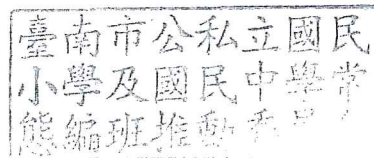 臺南市公私立國民
小學及國民中學常
態編班推動